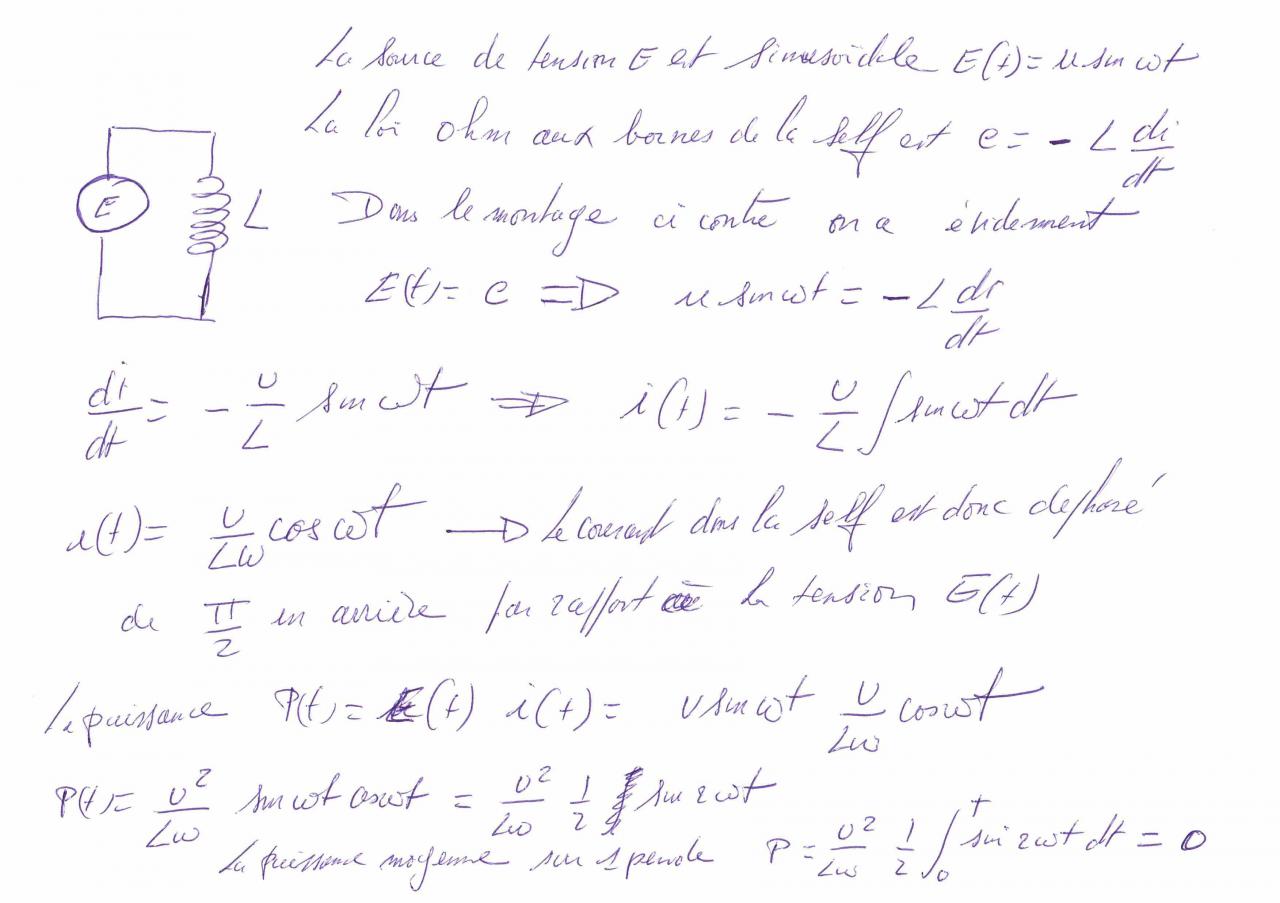 La source de tension E est sinusoïdale E(t) = u sin ωt
La loi ohm aux bornes de la self est e = - L di/dt
E
L
Dans le montage ci contre on a évidemment
E(t) = e ⟹ u sin ωt = - L di/dt
di/dt = - U/L sin ωt ⟹ i(t) = - U/L ∫ sin ωt dt
i(t) = U/Lω cos ωt → Le courant dans la self est donc déphasé
de π/2 en arrière par rapport à la tension E(t)
La puissance P(t) = E(t) i(t) = U sin ωt U/Lω cos ωt
P(t) = U²/Lω sin ωt cos ωt = U²/Lω 1/2 sin 2ωt
La puissance moyenne sur 1 période P = U²/Lω 1/2 ∫₀ᵀ sin 2ωt dt = 0